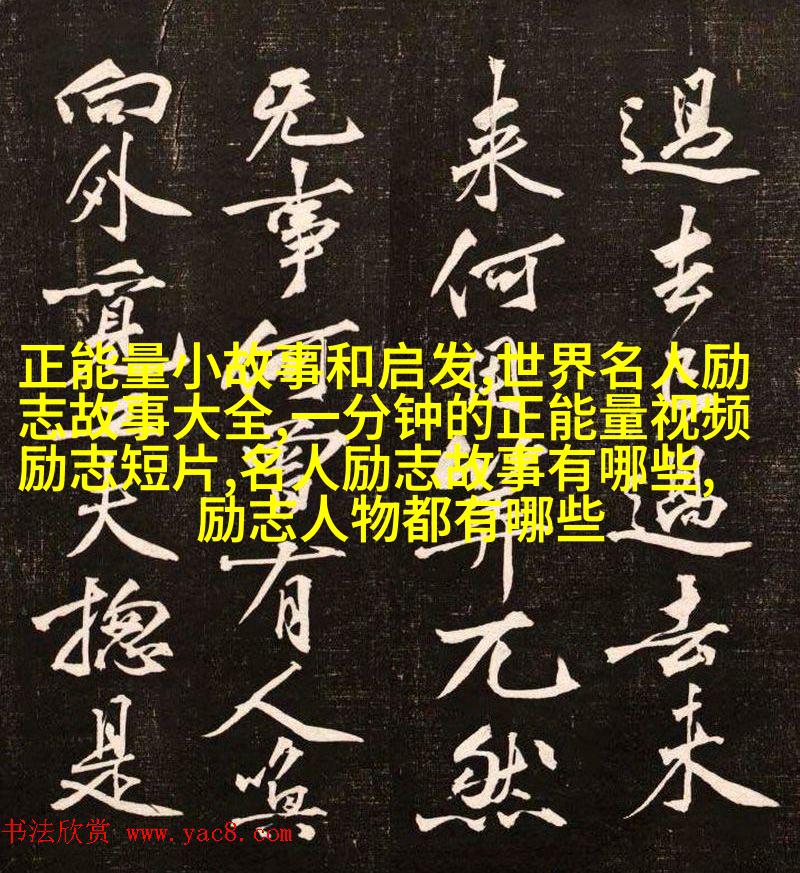 過去過去未
来何用筭兀然
无事何曾有人喚
向外覓夫揔是
正能量小故事和启发,世界名人励
志故事大全,一分钟的正能量视频
励志短片,名人励志故事有哪些,
励志人物都有哪些
书法欣赏 www.yac8.com